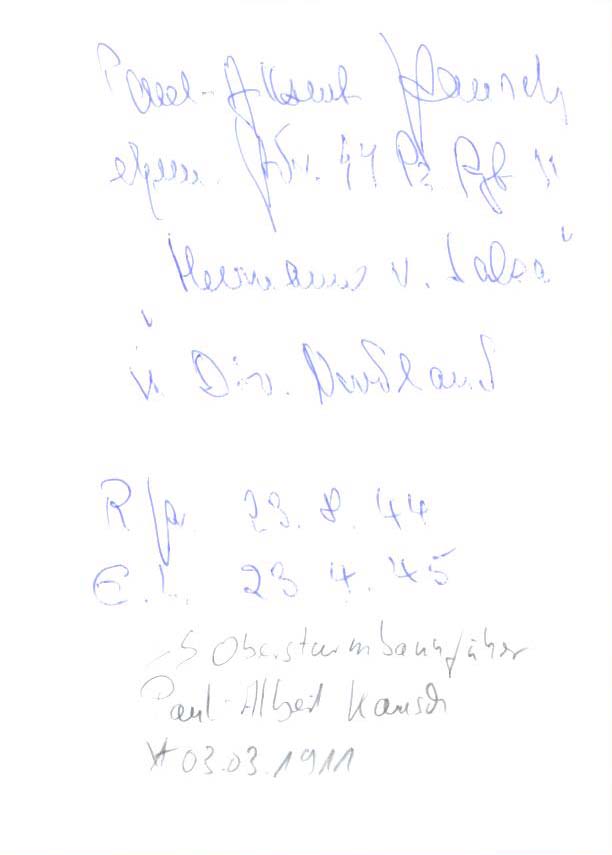 Paul-Albert Kausch
Kdr. 11 Pz Rgt
"Hermann v. Salza"
Div. Nordland
R 23. 8. 44
E.L. 23 4. 45
Obersturmbannführer
Paul-Albert Kausch
* 03.03.1911